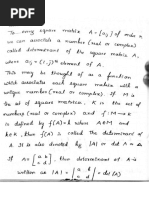 To every square matrix A = [aij] of order n
we can associate a number (real or complex)
called determinant of the square matrix A,
where aij = (i,j)th element of A.
This may be thought of as a function
which associates each square matrix with a
unique number (real or complex). If M is
the set of square matrices, K is the set of
numbers (real or complex) and f: M→K
is defined by f(A) = k where A∈M and
k∈K, then f(A) is called the determinant of
A. It is also denoted by |A| or det A or Δ.
If A = [a b c d], then determinant of A is
written as |A| = |a b c d| = det(A)